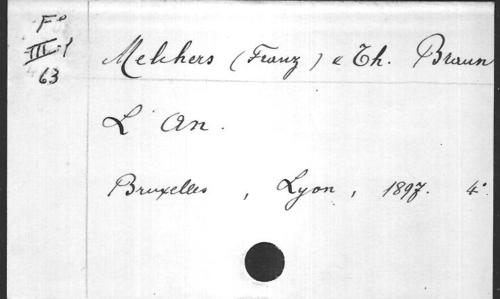 Fº
III-Y
63
Melchers (Franz) e Th. Braun
L'An.
Bruxelles, Lyon, 1897. 4º